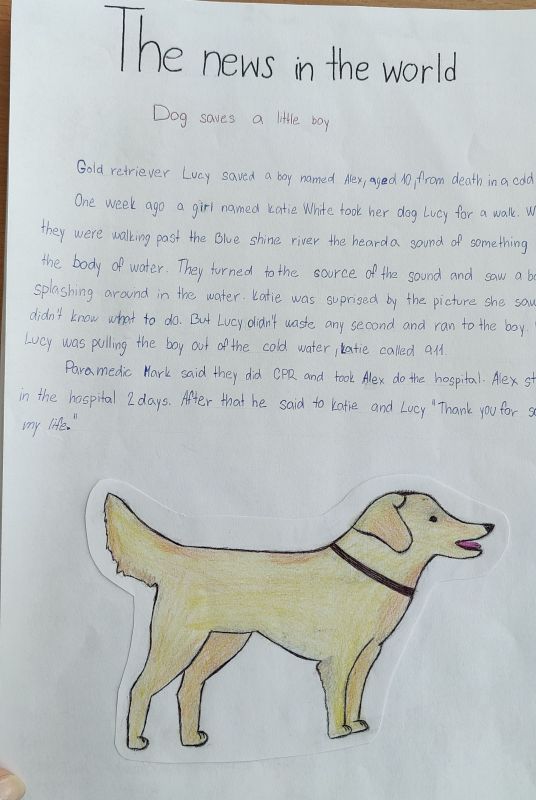 The news in the world
Dog saves a little boy
Gold retriever Lucy saved a boy named Alex, aged 10, from death in a cold
One week ago a girl named Katie White took her dog Lucy for a walk. W
they were walking past the Blue shine river the heard a sound of something
the body of water. They turned to the source of the sound and saw a bo
splashing around in the water. Katie was suprised by the picture she saw
didn't know what to do. But Lucy didn't waste any second and ran to the boy.
Lucy was pulling the boy out of the cold water, Katie called 911.
Paramedic Mark said they did CPR and took Alex do the hospital. Alex st
in the hospital 2 days. After that he said to Katie and Lucy "Thank you for s
my life."